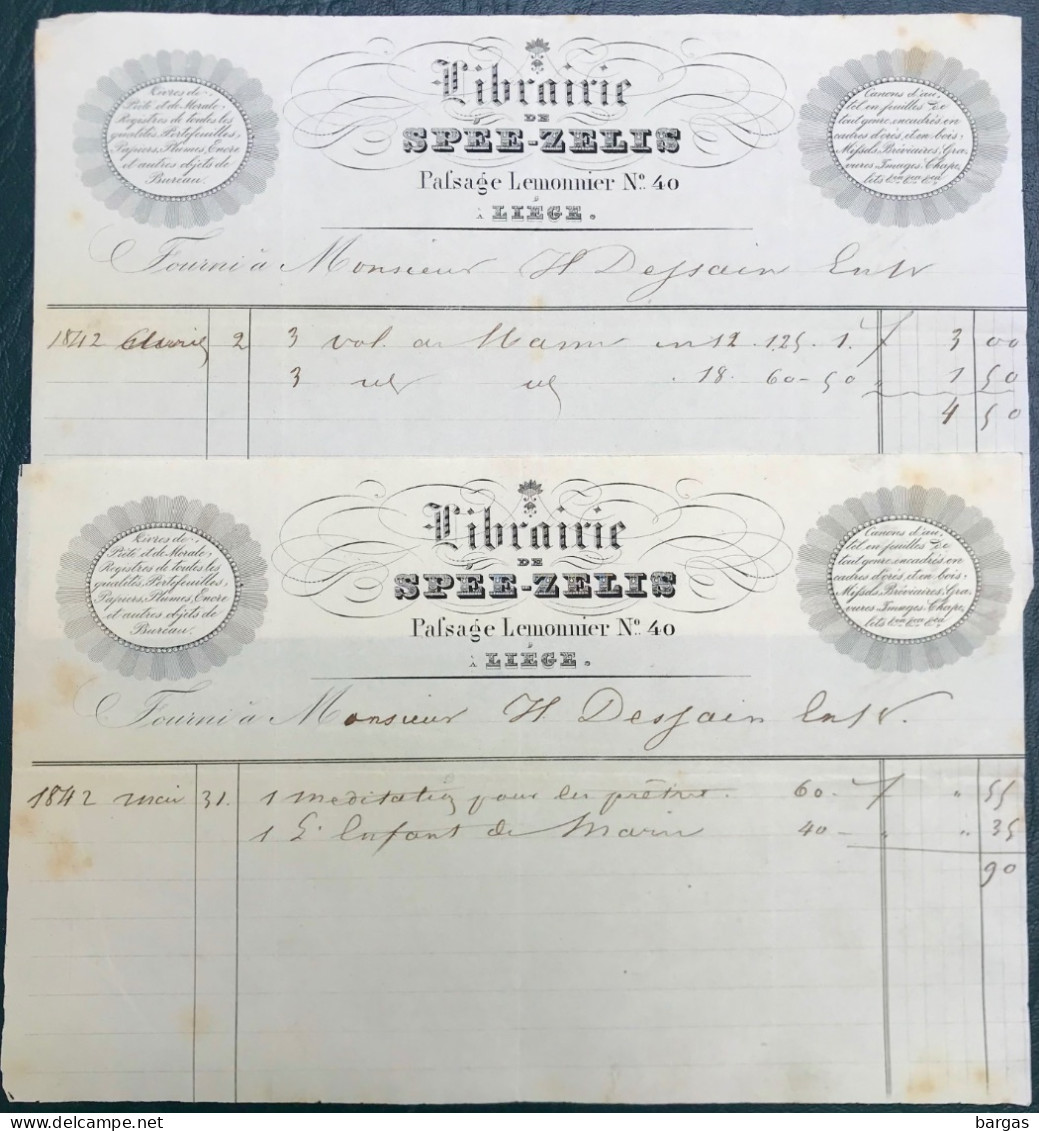 Livres de
Piété et de Morale,
Registres de toutes les
qualités, Portefeuilles,
Papiers, Plumes, Encre
et autres objets de
Bureau.
Librairie
DE
SPÉE-ZELIS
Paſsage Lemonnier Nº. 40
À LIÉGE.
Canons d'au,
tel en feuilles &c
tout genre, encadrés en
cadres d'orés, et en bois,
Miſsels, Bréviaires, Gra,
vures Images, Chape,
lets
Fourni à Monsieur H Deſsain
1842 2 3 vol. de in 12 1.25. 1. 3 00
3 . 18. 60-50 " 1 50
4 50
Livres de
Piété et de Morale,
Registres de toutes les
qualités, Portefeuilles,
Papiers, Plumes, Encre
et autres objets de
Bureau.
Librairie
DE
SPÉE-ZELIS
Paſsage Lemonnier Nº. 40
À LIÉGE.
Canons d'au,
tel en feuilles &c
tout genre, encadrés en
cadres d'orés, et en bois,
Miſsels, Bréviaires, Gra,
vures Images, Chape,
lets
Fourni à Monsieur H. Deſsain
1842 31. 1 meditation pour les prêtres. 60- " 55
1 L'Enfant de Marie 40- " " 35
90
bargas